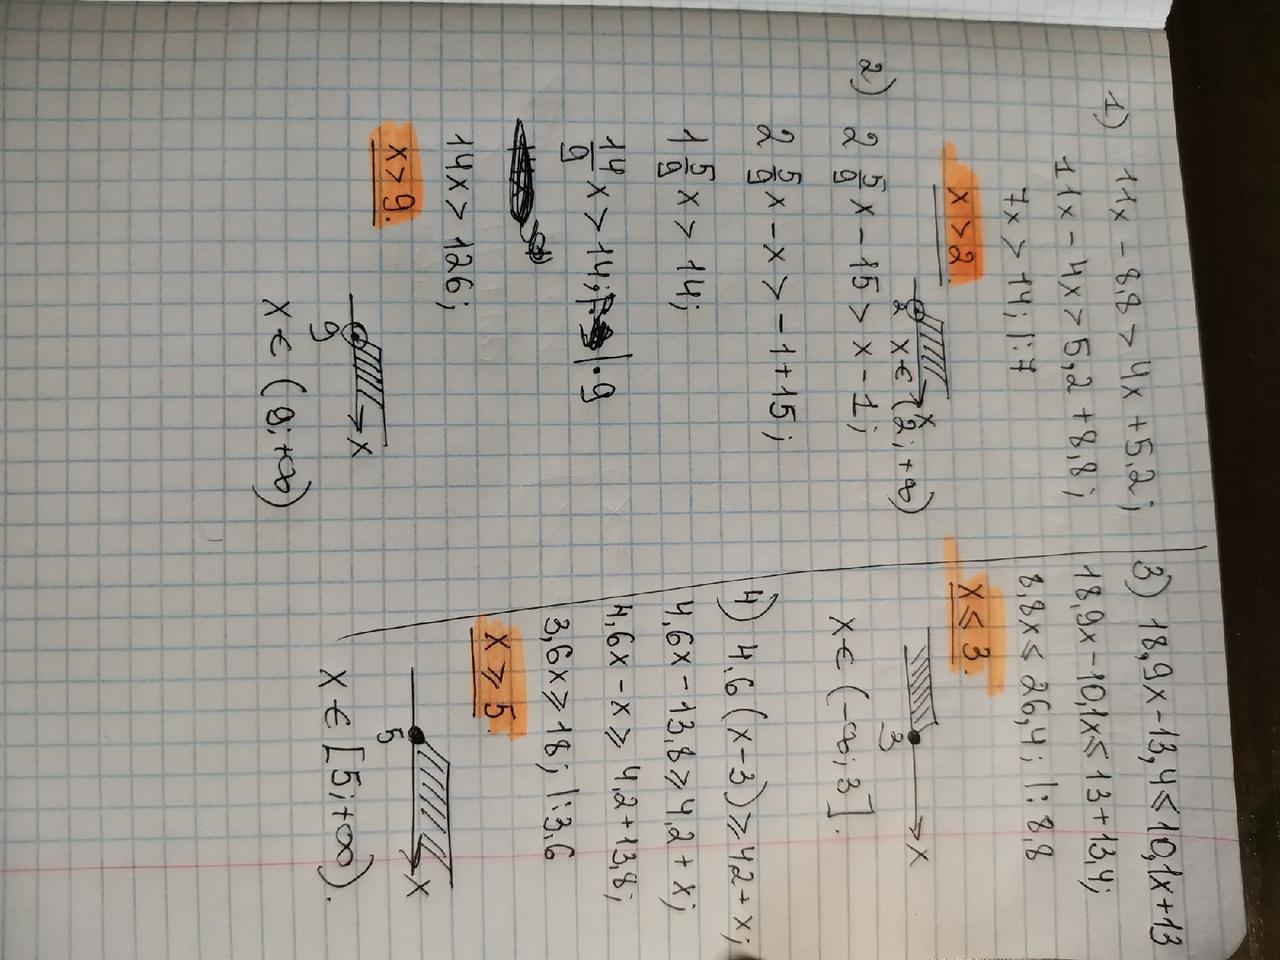 1) 11x - 8,8 > 4x + 5,2;
11x - 4x > 5,2 + 8,8;
7x > 14; |:7
x > 2.
2 x
x ∈ (2; +∞)
2) 2 5/9 x - 15 > x - 1;
2 5/9 x - x > -1 + 15;
1 5/9 x > 14;
14/9 x > 14; | · 9
14x > 126;
x > 9.
9 x
x ∈ (9; +∞)
3) 18,9x - 13,4 ≤ 10,1x + 13
18,9x - 10,1x ≤ 13 + 13,4;
8,8x ≤ 26,4; |: 8,8
x ≤ 3.
3 x
x ∈ (-∞; 3].
4) 4,6 (x - 3) ≥ 4,2 + x;
4,6x - 13,8 ≥ 4,2 + x;
4,6x - x ≥ 4,2 + 13,8;
3,6x ≥ 18; |:3,6
x ≥ 5.
5 x
x ∈ [5; +∞).